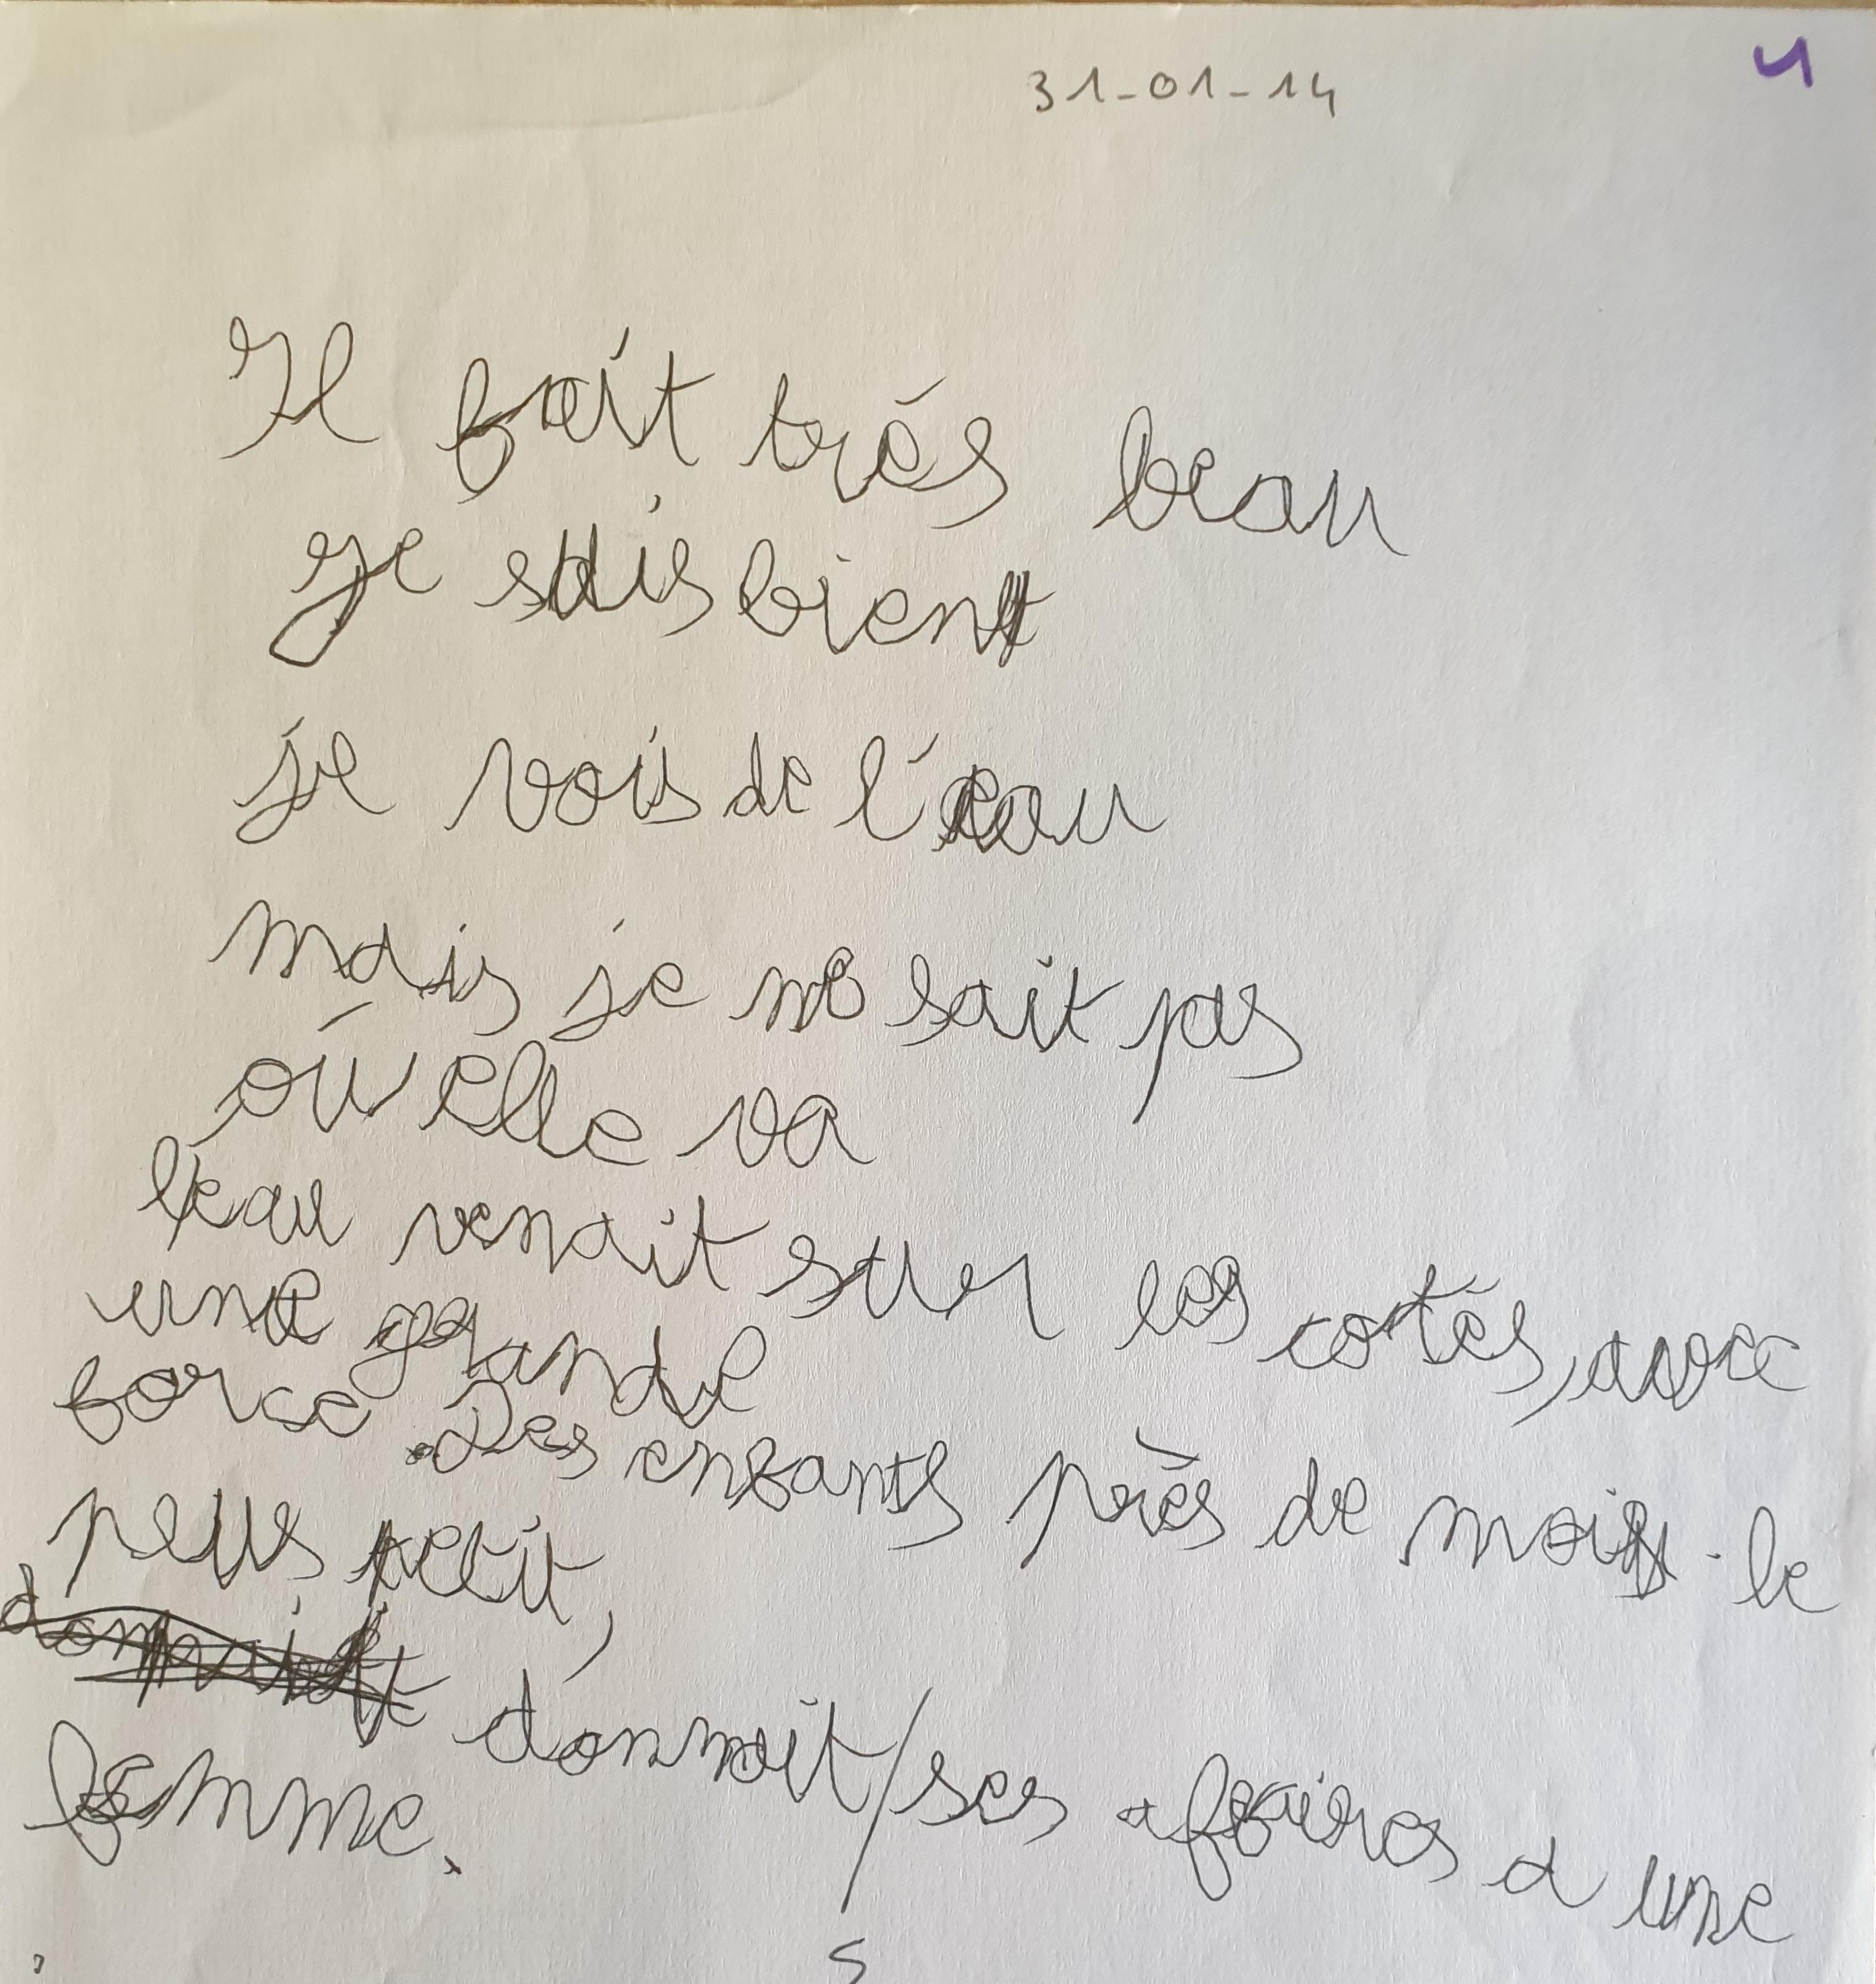 31-01-14
4
Il fait trés beau
Je suis bien
je vois de l'eau
mais je ne sait pas
où elle va
l'eau venait suer les cortés, avec
une grande
force. Des enfants près de moi. le
peus petit,
donnait/ses afaires a une
femme.
5